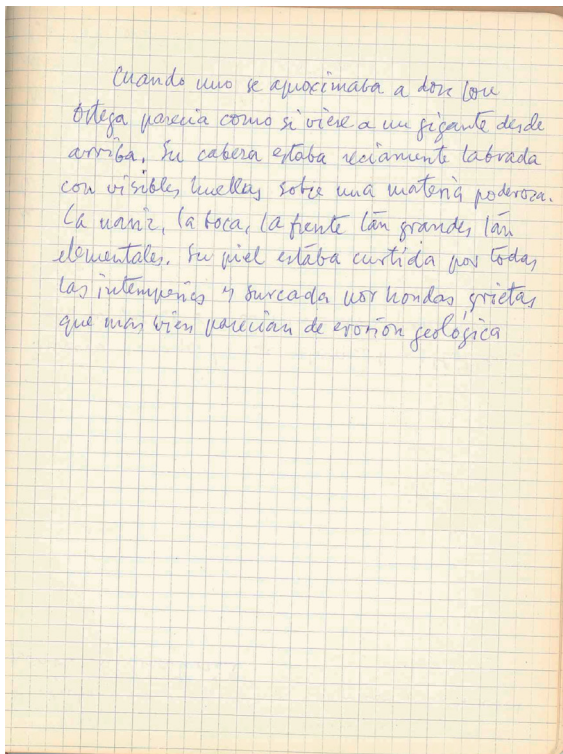 Cuando uno se aproximaba a don José
Ortega parecia como si viese a un gigante desde
arriba. Su cabeza estaba reciamente labrada
con visibles huellas sobre una materia poderosa.
La nariz, la boca, la frente tan grandes tan
elementales. Su piel estaba curtida por todas
las intemperies y surcada por hondas grietas
que mas bien parecian de erosión geológica